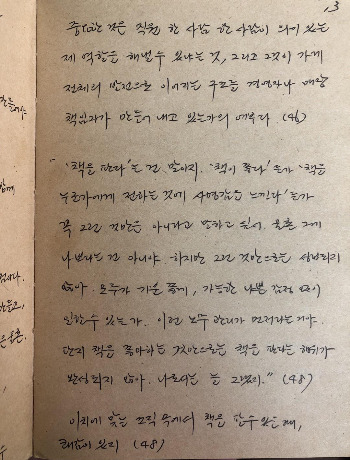 3
중요한 것은 직원 한 사람 한 사람이 의미 있는
제 역할을 해낼 수 있냐는 것, 그리고 그것이 가게
전체의 발전으로 이어지는 구조를 경영자나 매장
책임자가 만들어 내고 있는가의 여부다 (46)
"'책을 판다'는 건 말이지. '책이 좋다'든가 '책을
누군가에게 전하는 것에 사명감을 느낀다'든가
꼭 그런 것만은 아니라고 말하고 싶어. 물론 그게
나쁘다는 건 아니야. 하지만 그런 것만으로는 성립되지
않아. 모두가 기분 좋게, 가능한 나쁜 감정 없이
일할 수 있는가. 이런 노무 관리가 먼저라는 거야.
단지 책을 좋아하는 것만으로는 책을 판다는 행위가
완성되지 않아. 나로서는 늘 그랬지." (48)
이치에 맞는 조직 속에서 책을 팔 수 있는 때,
쾌감이 있지 (48)
만들어
함께
만들고,
물론,